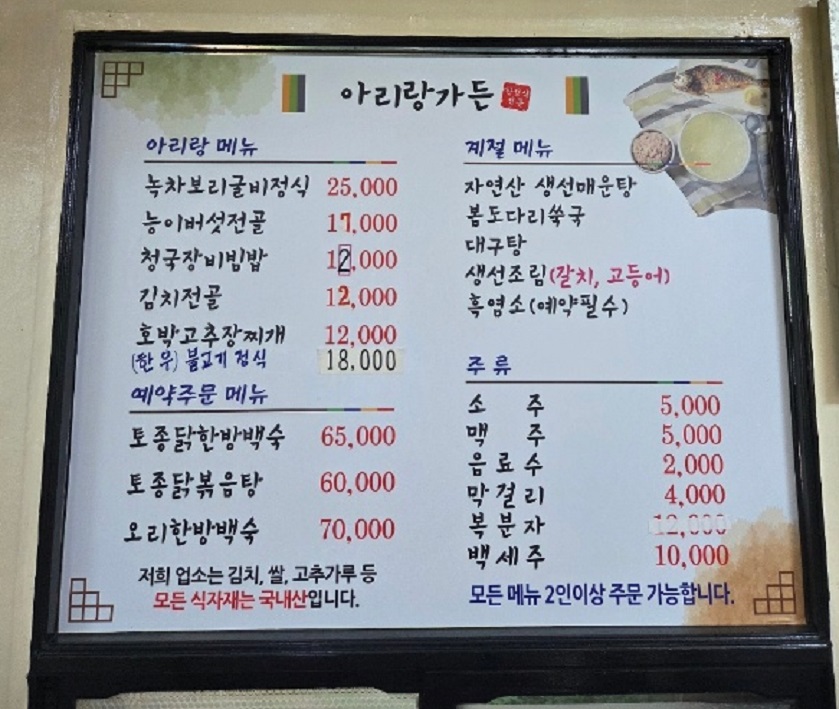 아리랑가든
아리랑 메뉴
녹차보리굴비정식 25,000
능이버섯전골 17,000
청국장비빔밥 12,000
김치전골 12,000
호박고추장찌개 12,000
(한우) 불고기 정식 18,000
예약주문 메뉴
토종닭한방백숙 65,000
토종닭볶음탕 60,000
오리한방백숙 70,000
저희 업소는 김치, 쌀, 고추가루 등
모든 식자재는 국내산입니다.
계절 메뉴
자연산 생선매운탕
봄도다리쑥국
대구탕
생선조림(갈치, 고등어)
흑염소(예약필수)
주류
소주 5,000
맥주 5,000
음료수 2,000
막걸리 4,000
복분자 12,000
백세주 10,000
모든 메뉴 2인이상 주문 가능합니다.